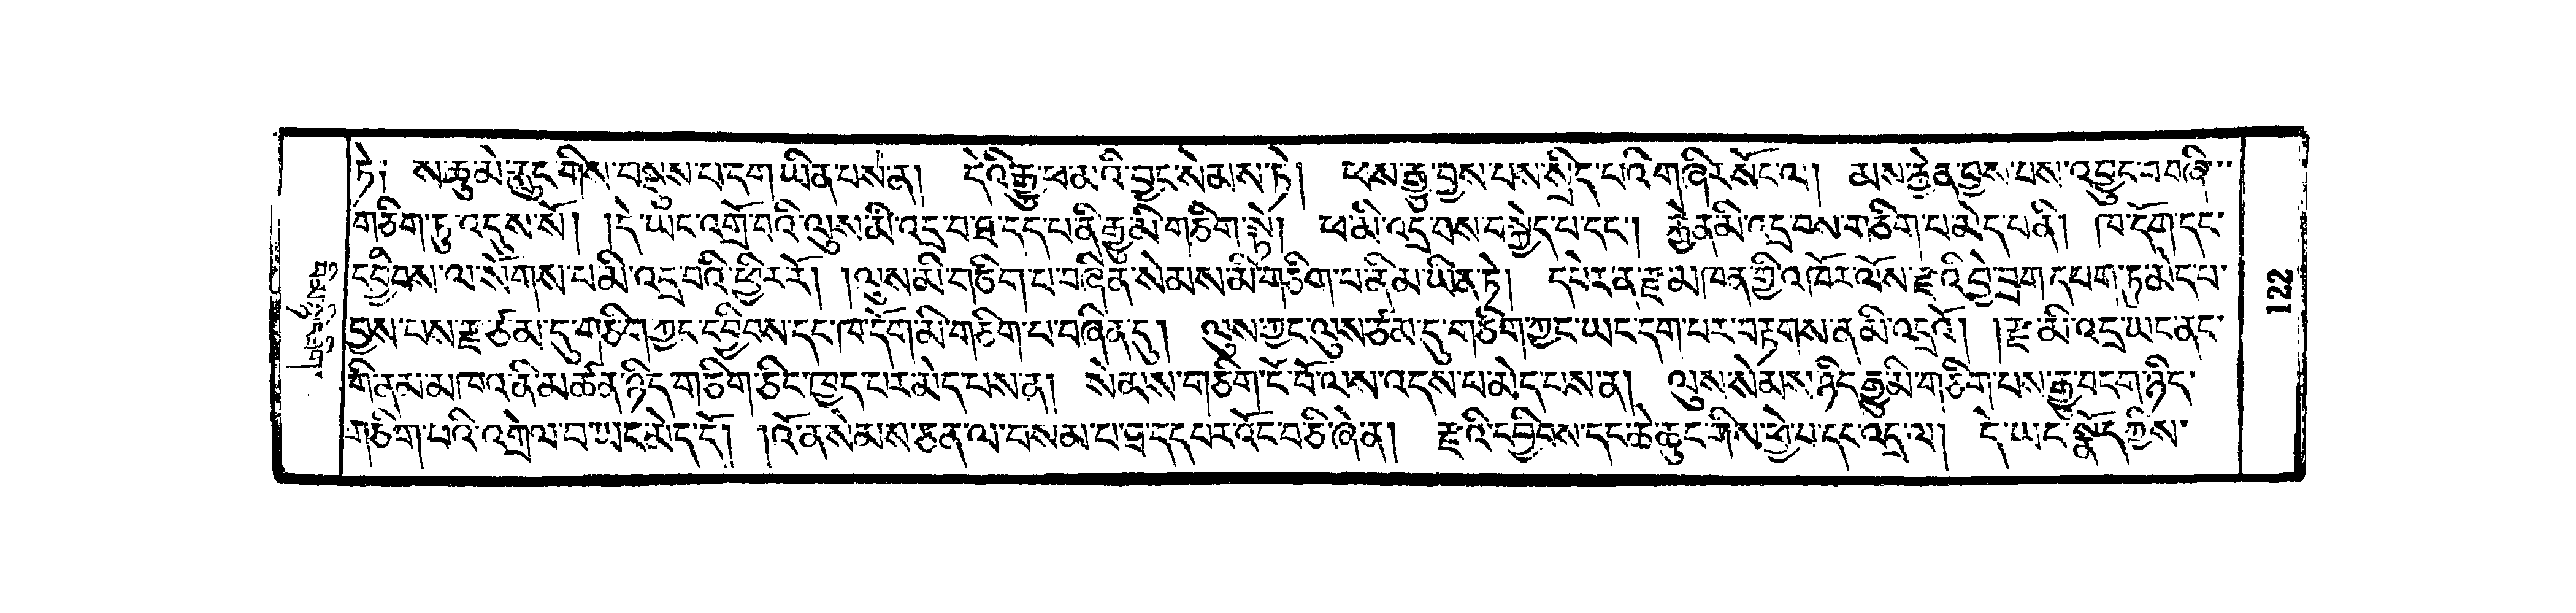 ཏེ། ས་ཆུ་མེ་རླུང་གིས་བསྡུས་པ་དག་ཡིན་པས་ན། དེའི་རྒྱུ་ཕ་མའི་བྱང་སེམས་ཏེ། ཕས་རྒྱུ་བྱས་པས་སྲིད་པའི་གཞིར་སོང་ལ། མས་རྐྱེན་བྱས་པས་འབྱུང་བ་བཞི་
གཅིག་ཏུ་འདུས་སོ། །དེ་ཡང་འགྲོ་བའི་ལུས་མི་འདྲ་བ་ཐ་དད་པ་ནི་རྒྱུ་མི་གཅིག་སྟེ། ཕ་མི་འདྲ་བས་བསྐྱེད་པ་དང་། རྐྱེན་མི་འདྲ་བས་གཅིག་པ་མེད་པ་ནི། ཁ་དོག་དང་
དབྱིབས་ལ་སོགས་པ་མི་འདྲ་བའི་ཕྱིར་རོ། །ལུས་མི་གཅིག་པ་བཞིན་སེམས་མི་གཅིག་པ་ནི་མ་ཡིན་ཏེ། དཔེར་ན་རྫ་མཁན་གྱི་འཁོར་ལོས་རྫའི་བྱེ་བྲག་དཔག་ཏུ་མེད་པ་
བྱས་པས་རྫ་ཙམ་དུ་གཅིག་ཀྱང་དབྱིབས་དང་ཁ་དོག་མི་གཅིག་པ་བཞིན་དུ། ལུས་ཀྱང་ལུས་ཙམ་དུ་གཅིག་ཀྱང་ཡང་དག་པར་བརྟགས་ན་མི་འདྲའོ། །རྫ་མི་འདྲ་ཡང་ནང་
གི་ནམ་མཁའ་ནི་མཚན་ཉིད་གཅིག་ཅིང་ཁྱད་པར་མེད་པས་ན། སེམས་གཅིག་ངོ་བོ་ལས་འདས་པ་མེད་པས་ན། ལུས་སེམས་ཉིད་རྒྱུ་མི་གཅིག་པས་རྒྱ་བདག་ཉིད་
གཅིག་པའི་འགྲེལ་བ་ཡང་མེད་དོ། །འོ་ན་སེམས་ཅན་ལ་བསམ་པ་ཐ་དད་པར་འོང་བ་ཅི་ཞེ་ན། རྫའི་དབྱིབས་དང་ཆེ་ཆུང་གིས་ཕྱེ་པ་དང་འདྲ་ལ། དེ་ཡང་སྣོད་ཀྱིས་
122